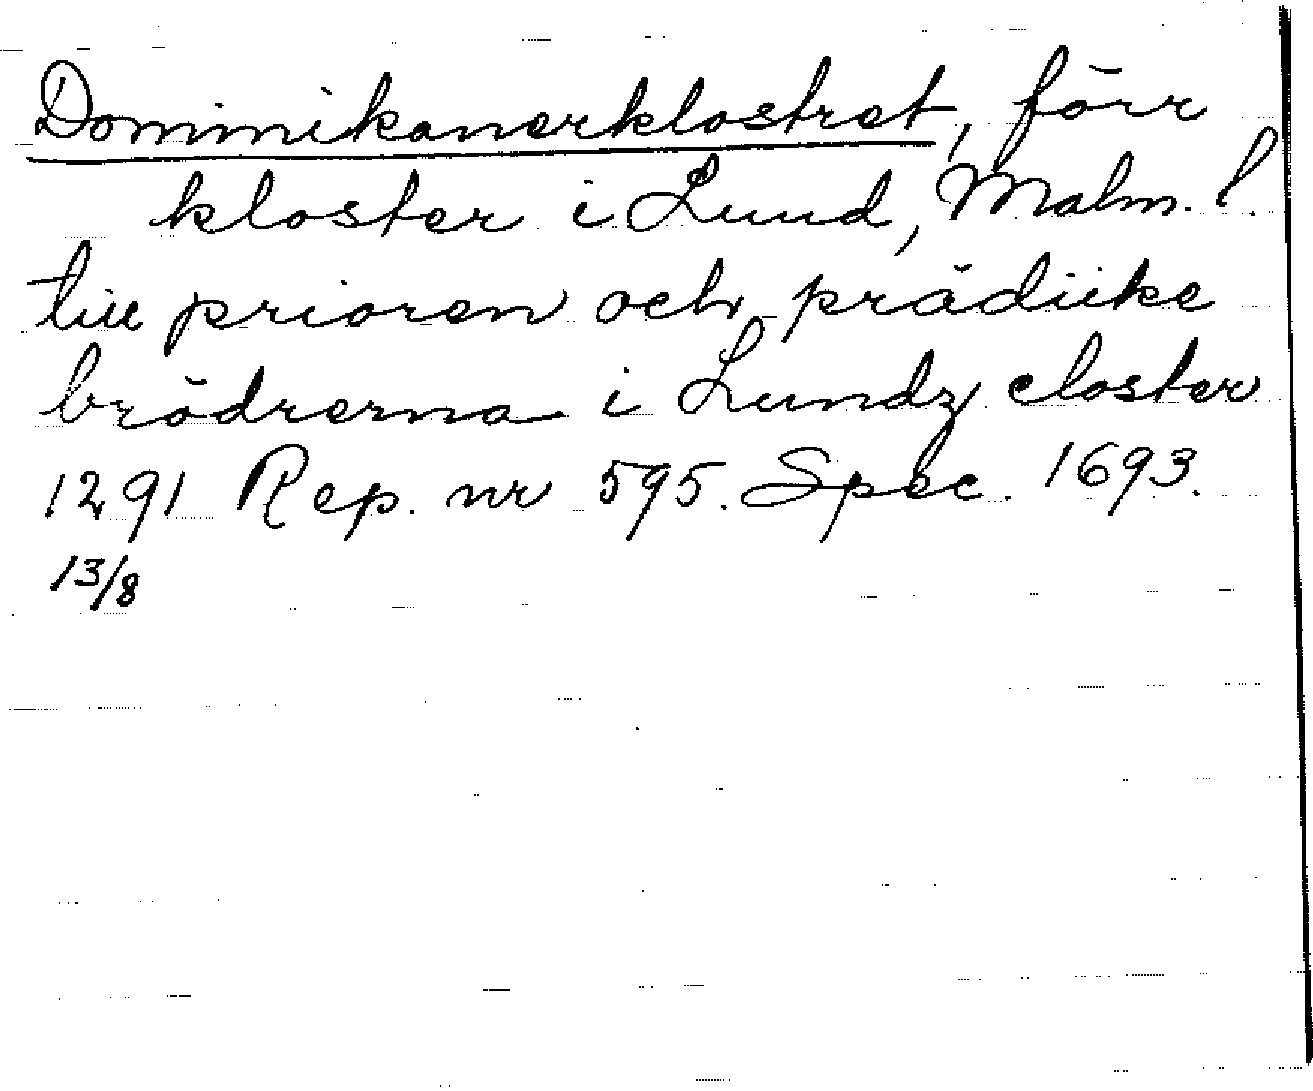 Dominikanerklostret, förr
kloster i Lund, Malm. l.
till prioren och prädiike
brödrerna i Lundz closter
1291 Rep. nr 595. Spec. 1693.
13/8